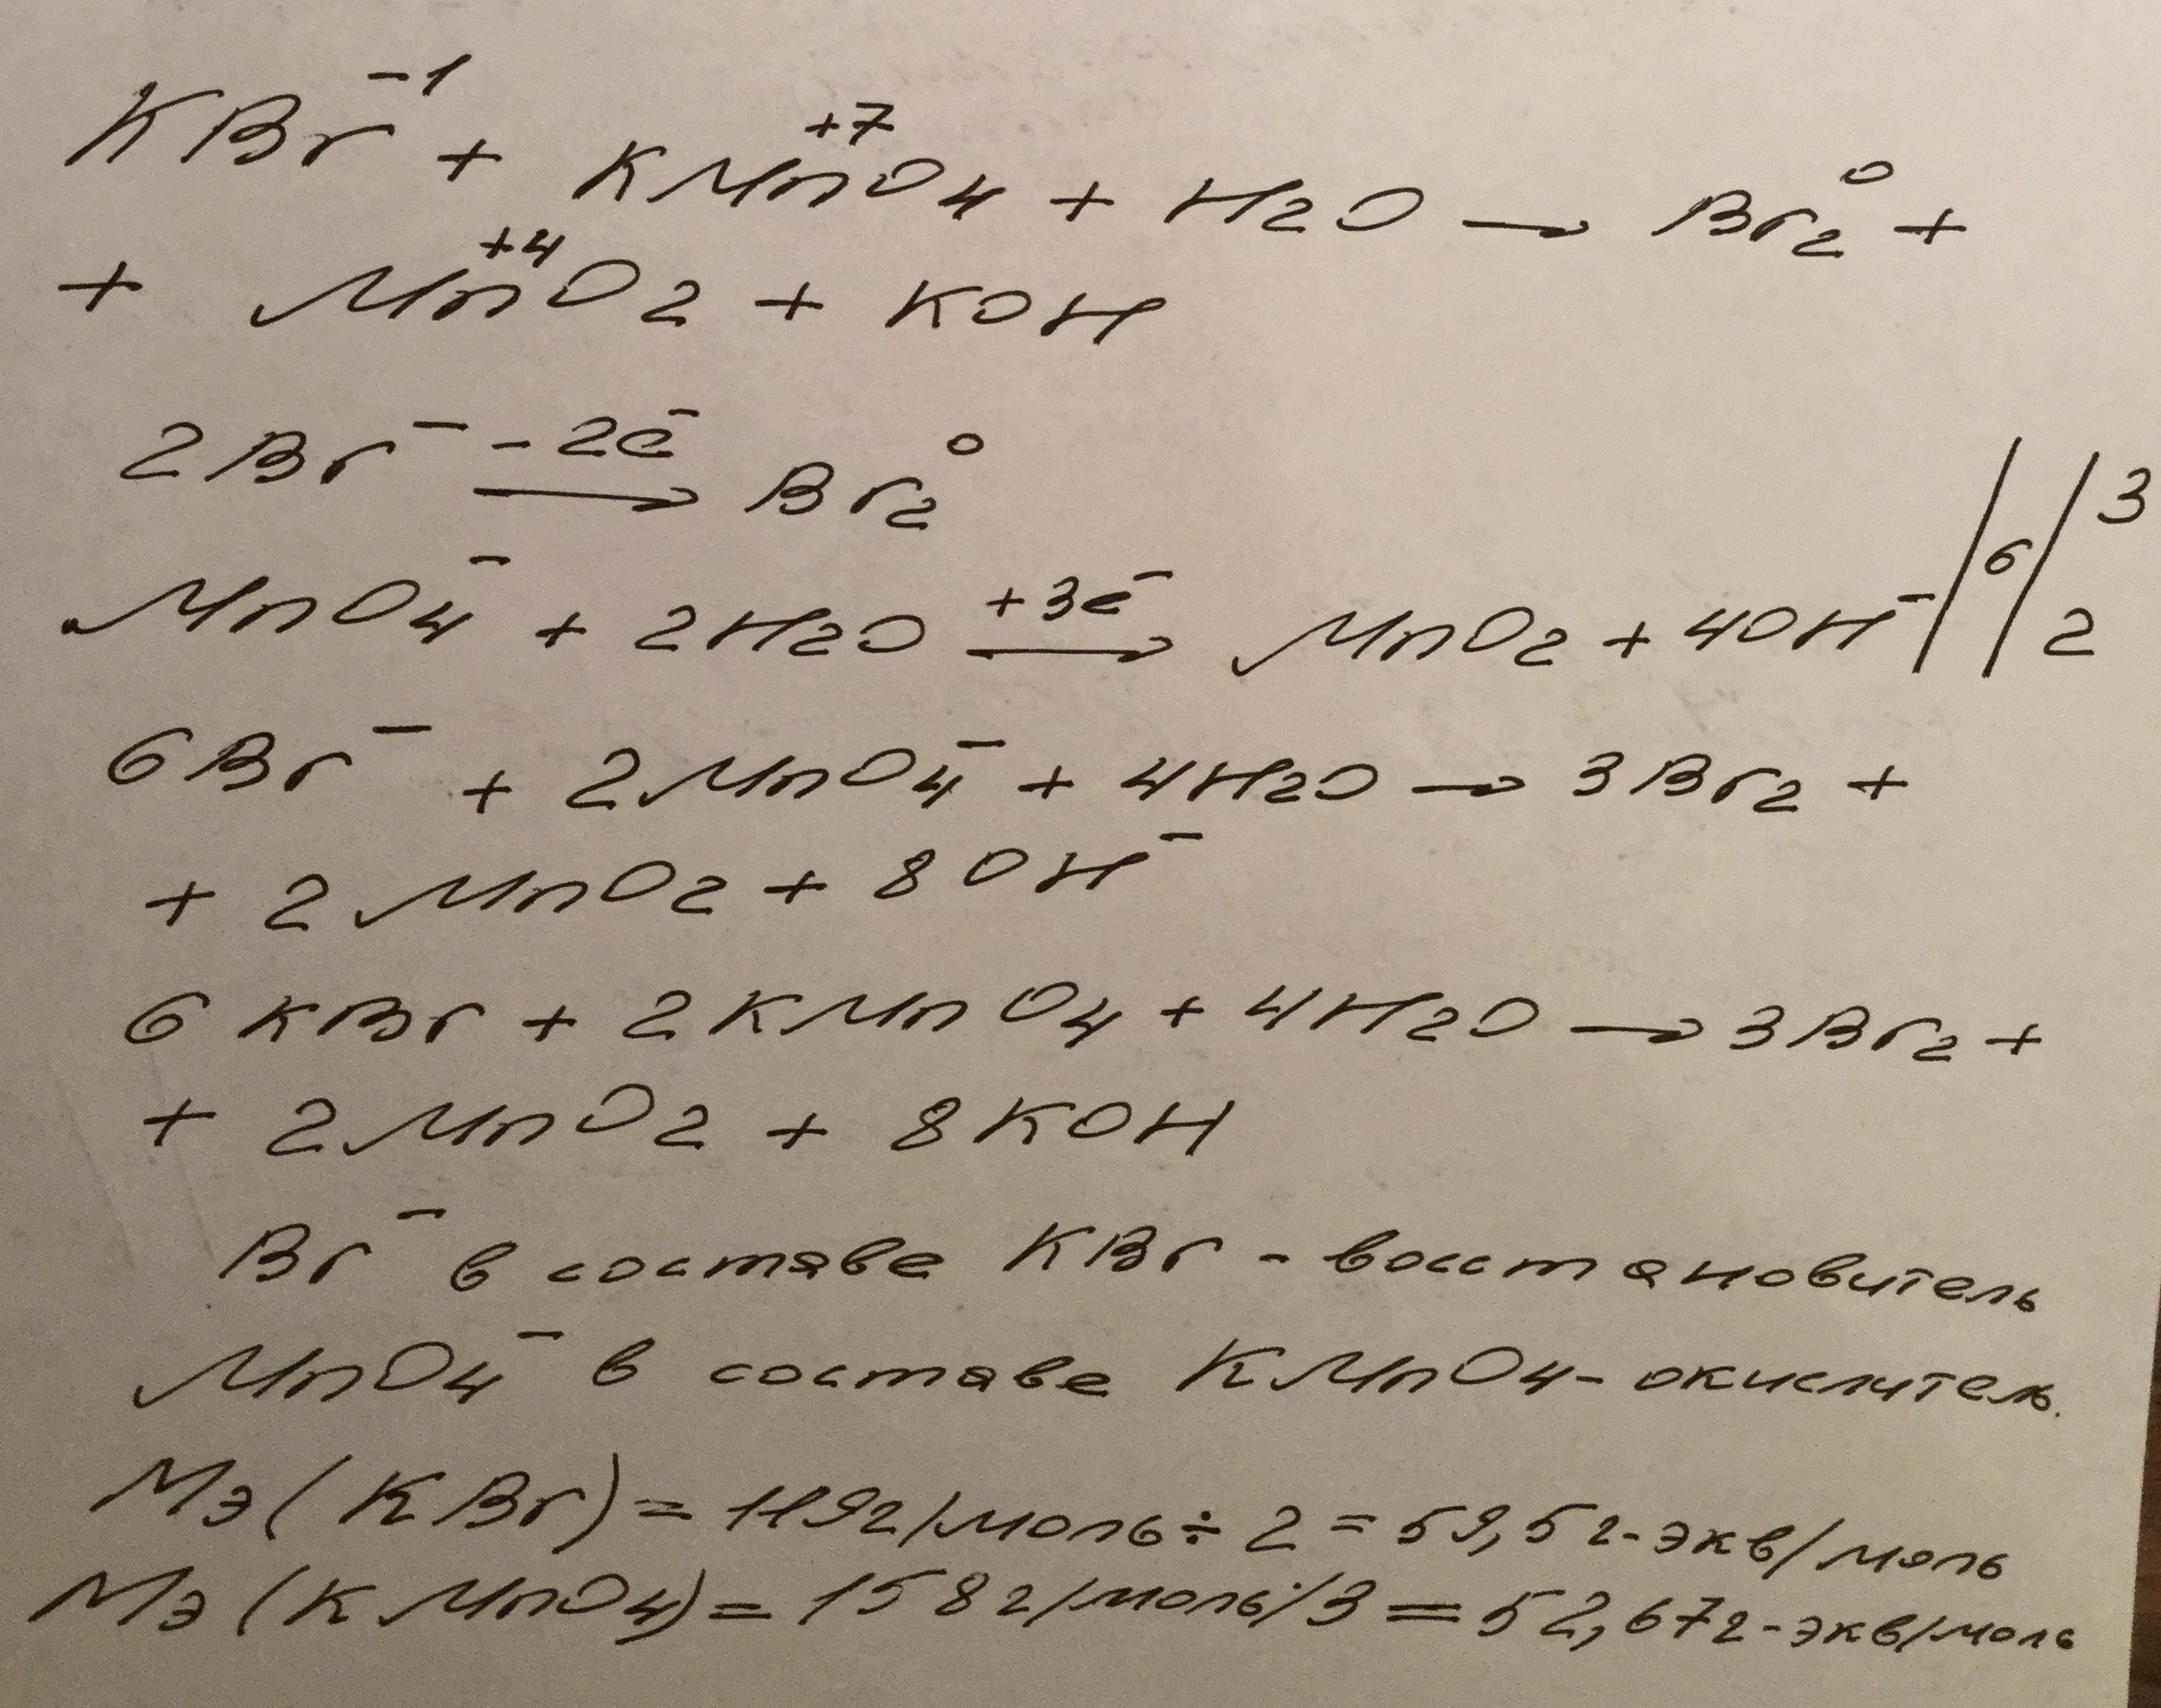 KBr⁻¹ + KMn⁺⁷O₄ + H₂O → Br₂⁰ +
+ Mn⁺⁴O₂ + KOH
2Br⁻ –2ē→ Br₂⁰
MnO₄⁻ + 2H₂O +3ē→ MnO₂ + 4OH⁻ | 6 | 3 2
6Br⁻ + 2MnO₄⁻ + 4H₂O → 3Br₂ +
+ 2MnO₂ + 8OH⁻
6KBr + 2KMnO₄ + 4H₂O → 3Br₂ +
+ 2MnO₂ + 8KOH
Br⁻ в составе KBr - восстановитель
MnO₄⁻ в составе KMnO₄ - окислитель.
Mэ(KBr) = 119г/моль ÷ 2 = 59,5г-экв/моль
Mэ(KMnO₄) = 158г/моль/3 = 52,67г-экв/моль